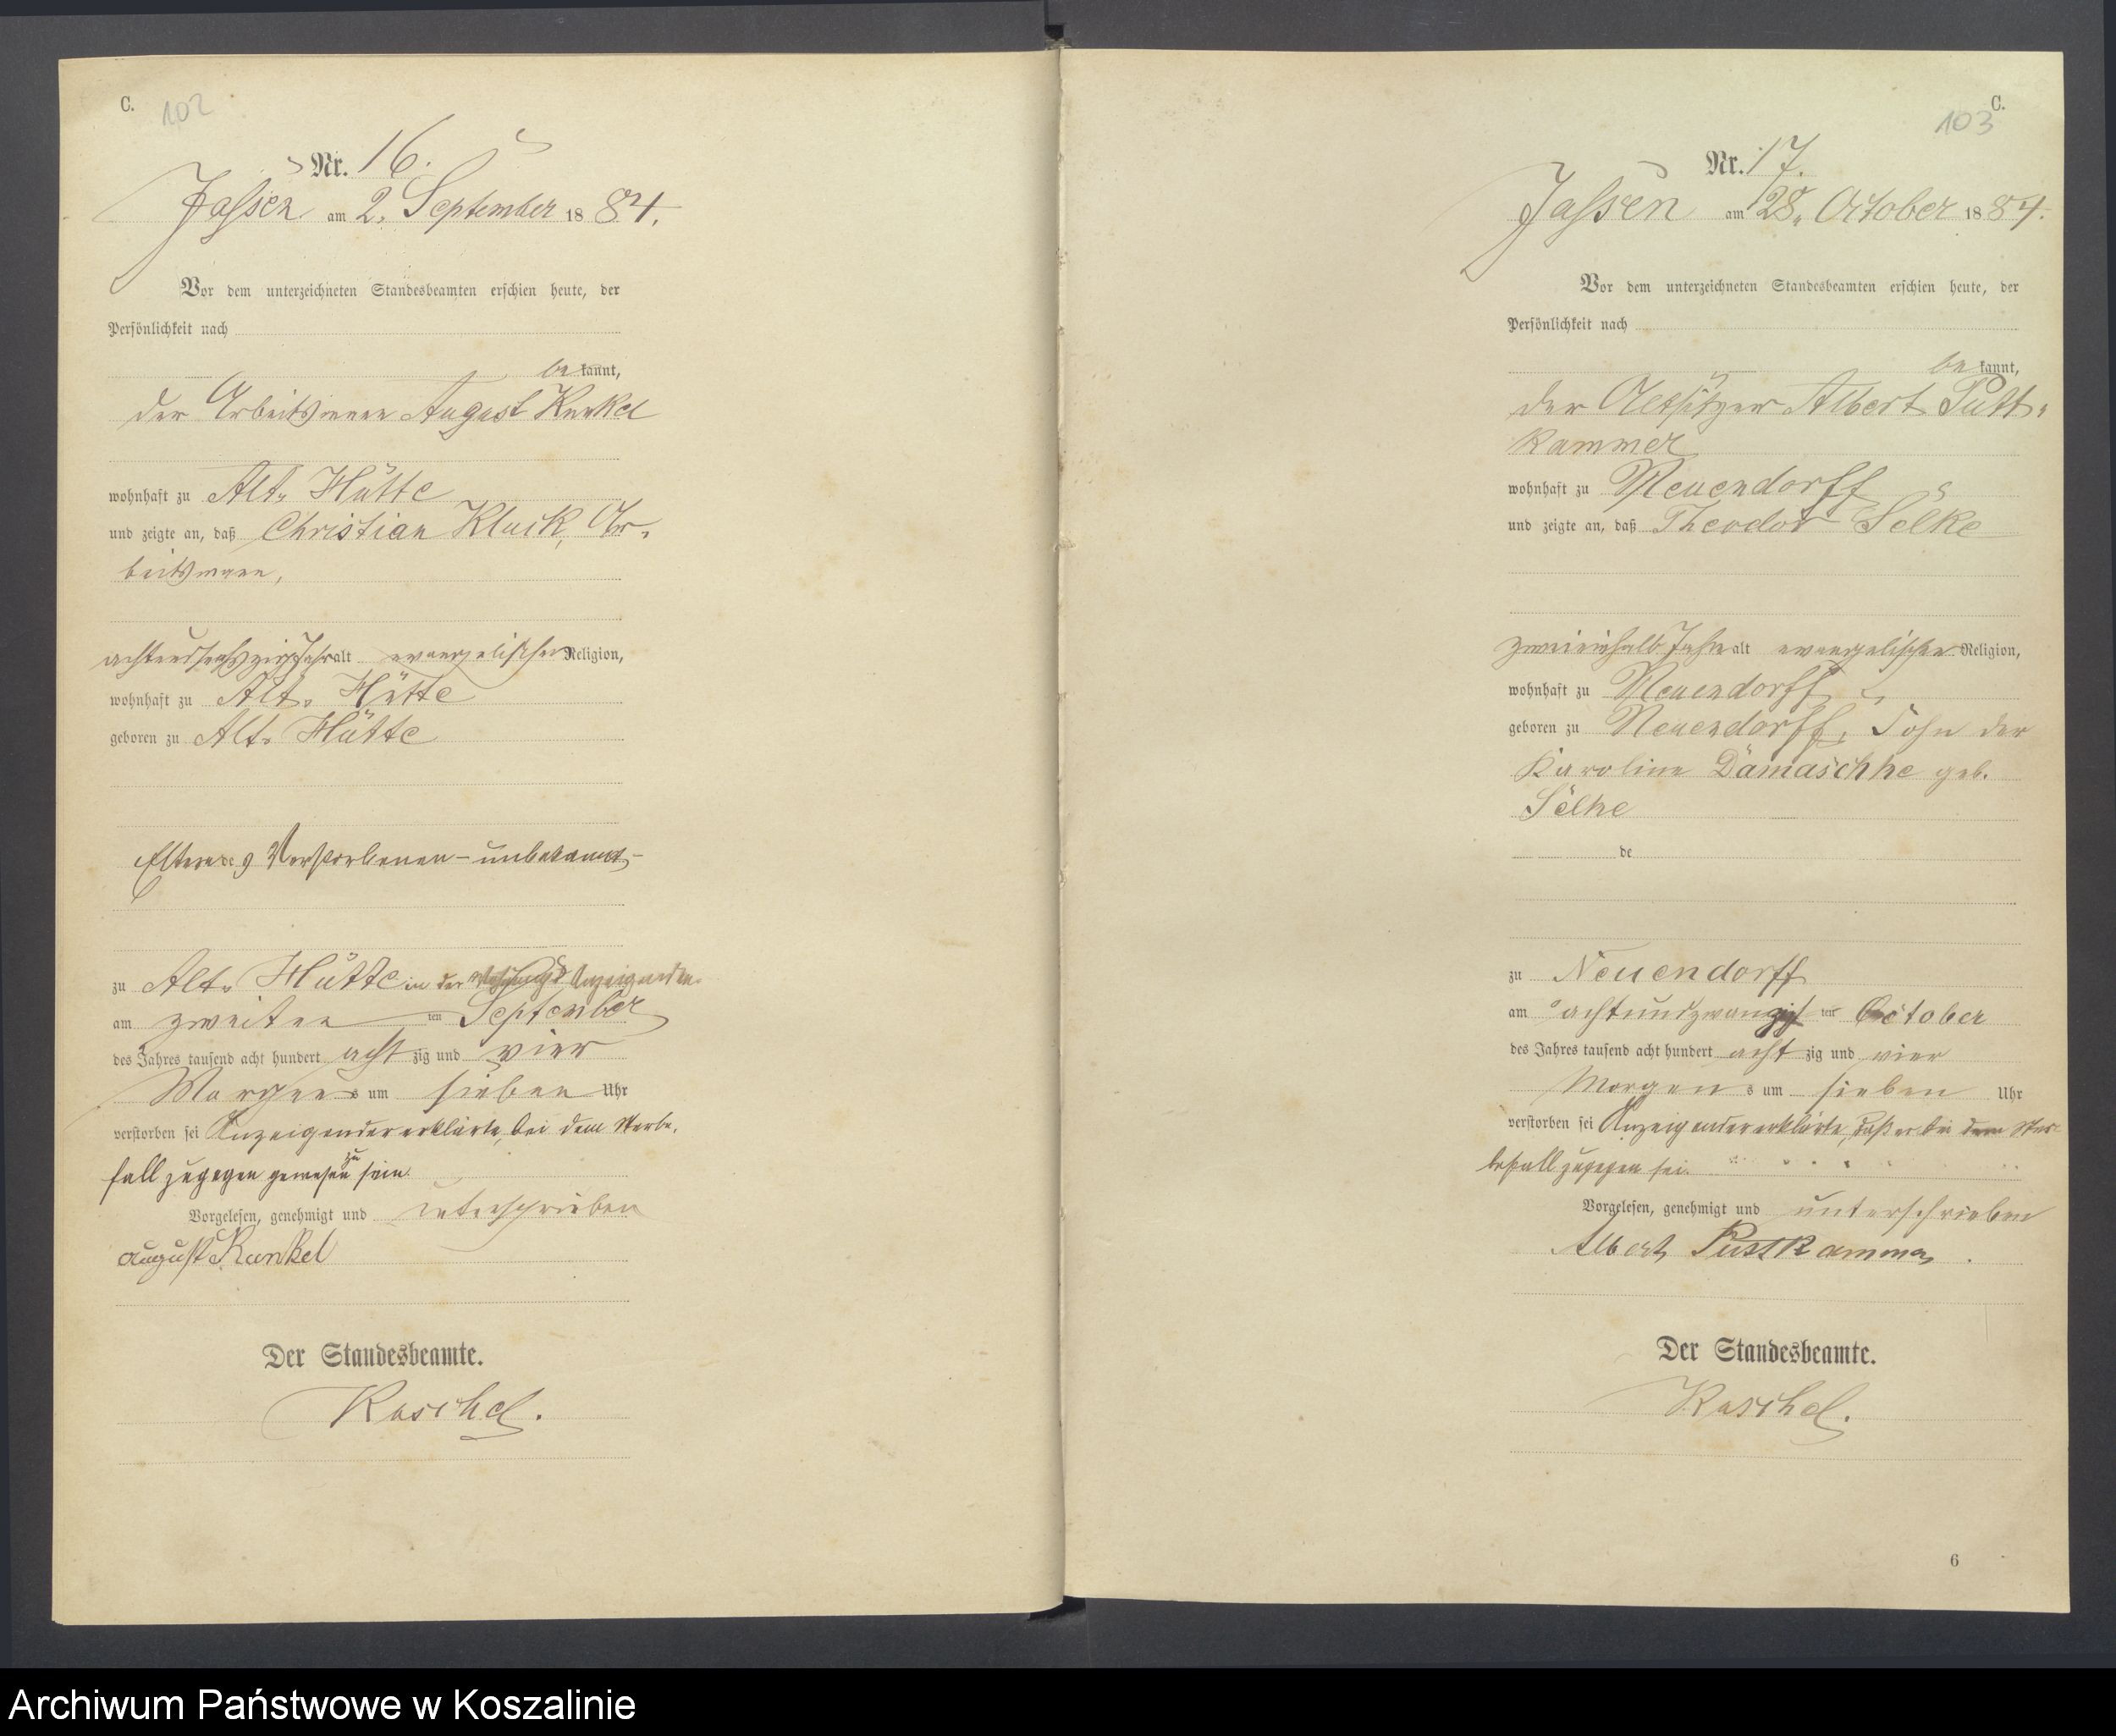 C.
102
Nr. 16.
Jassen am 2. September 1884.
Vor dem unterzeichneten Standesbeamten erschien heute, der
Persönlichkeit nach
bekannt,
der Arbeitsmann August Kunkel
wohnhaft zu Alt-Hütte
und zeigte an, daß Christian Kluck, Ar-
beitsmann,
achtundsechszig Jahr alt evangelischer Religion,
wohnhaft zu Alt-Hütte
geboren zu Alt-Hütte
Eltern des Verstorbenen - unbekannt -
zu Alt-Hütte in der Wohnung des Anzeigenden
am zweiten ten September
des Jahres tausend acht hundert achtzig und vier
Morgens um sieben Uhr
verstorben sei Anzeigender erklärte, bei dem Sterbe-
fall zugegen gewesen zu sein.
Vorgelesen, genehmigt und unterschrieben
August Kunkel
Der Standesbeamte.
Raschel.
C.
103
Nr. 17.
Jassen am 28. October 1884.
Vor dem unterzeichneten Standesbeamten erschien heute, der
Persönlichkeit nach
bekannt,
der Altsitzer Albert Putt-
kammer
wohnhaft zu Neuendorff
und zeigte an, daß Theodor Selke
zweieinhalb Jahr alt evangelischer Religion,
wohnhaft zu Neuendorff
geboren zu Neuendorff, Sohn der
Karoline Damaschke geb.
Selke
de
zu Neuendorff
am achtundzwanzigsten October
des Jahres tausend acht hundert achtzig und vier
Morgens um sieben Uhr
verstorben sei Anzeigender erklärte, daß er bei dem Ster-
befall zugegen sei.
Vorgelesen, genehmigt und unterschrieben
Albert Puttkammer
Der Standesbeamte.
Raschel.
6
Archiwum Państwowe w Koszalinie